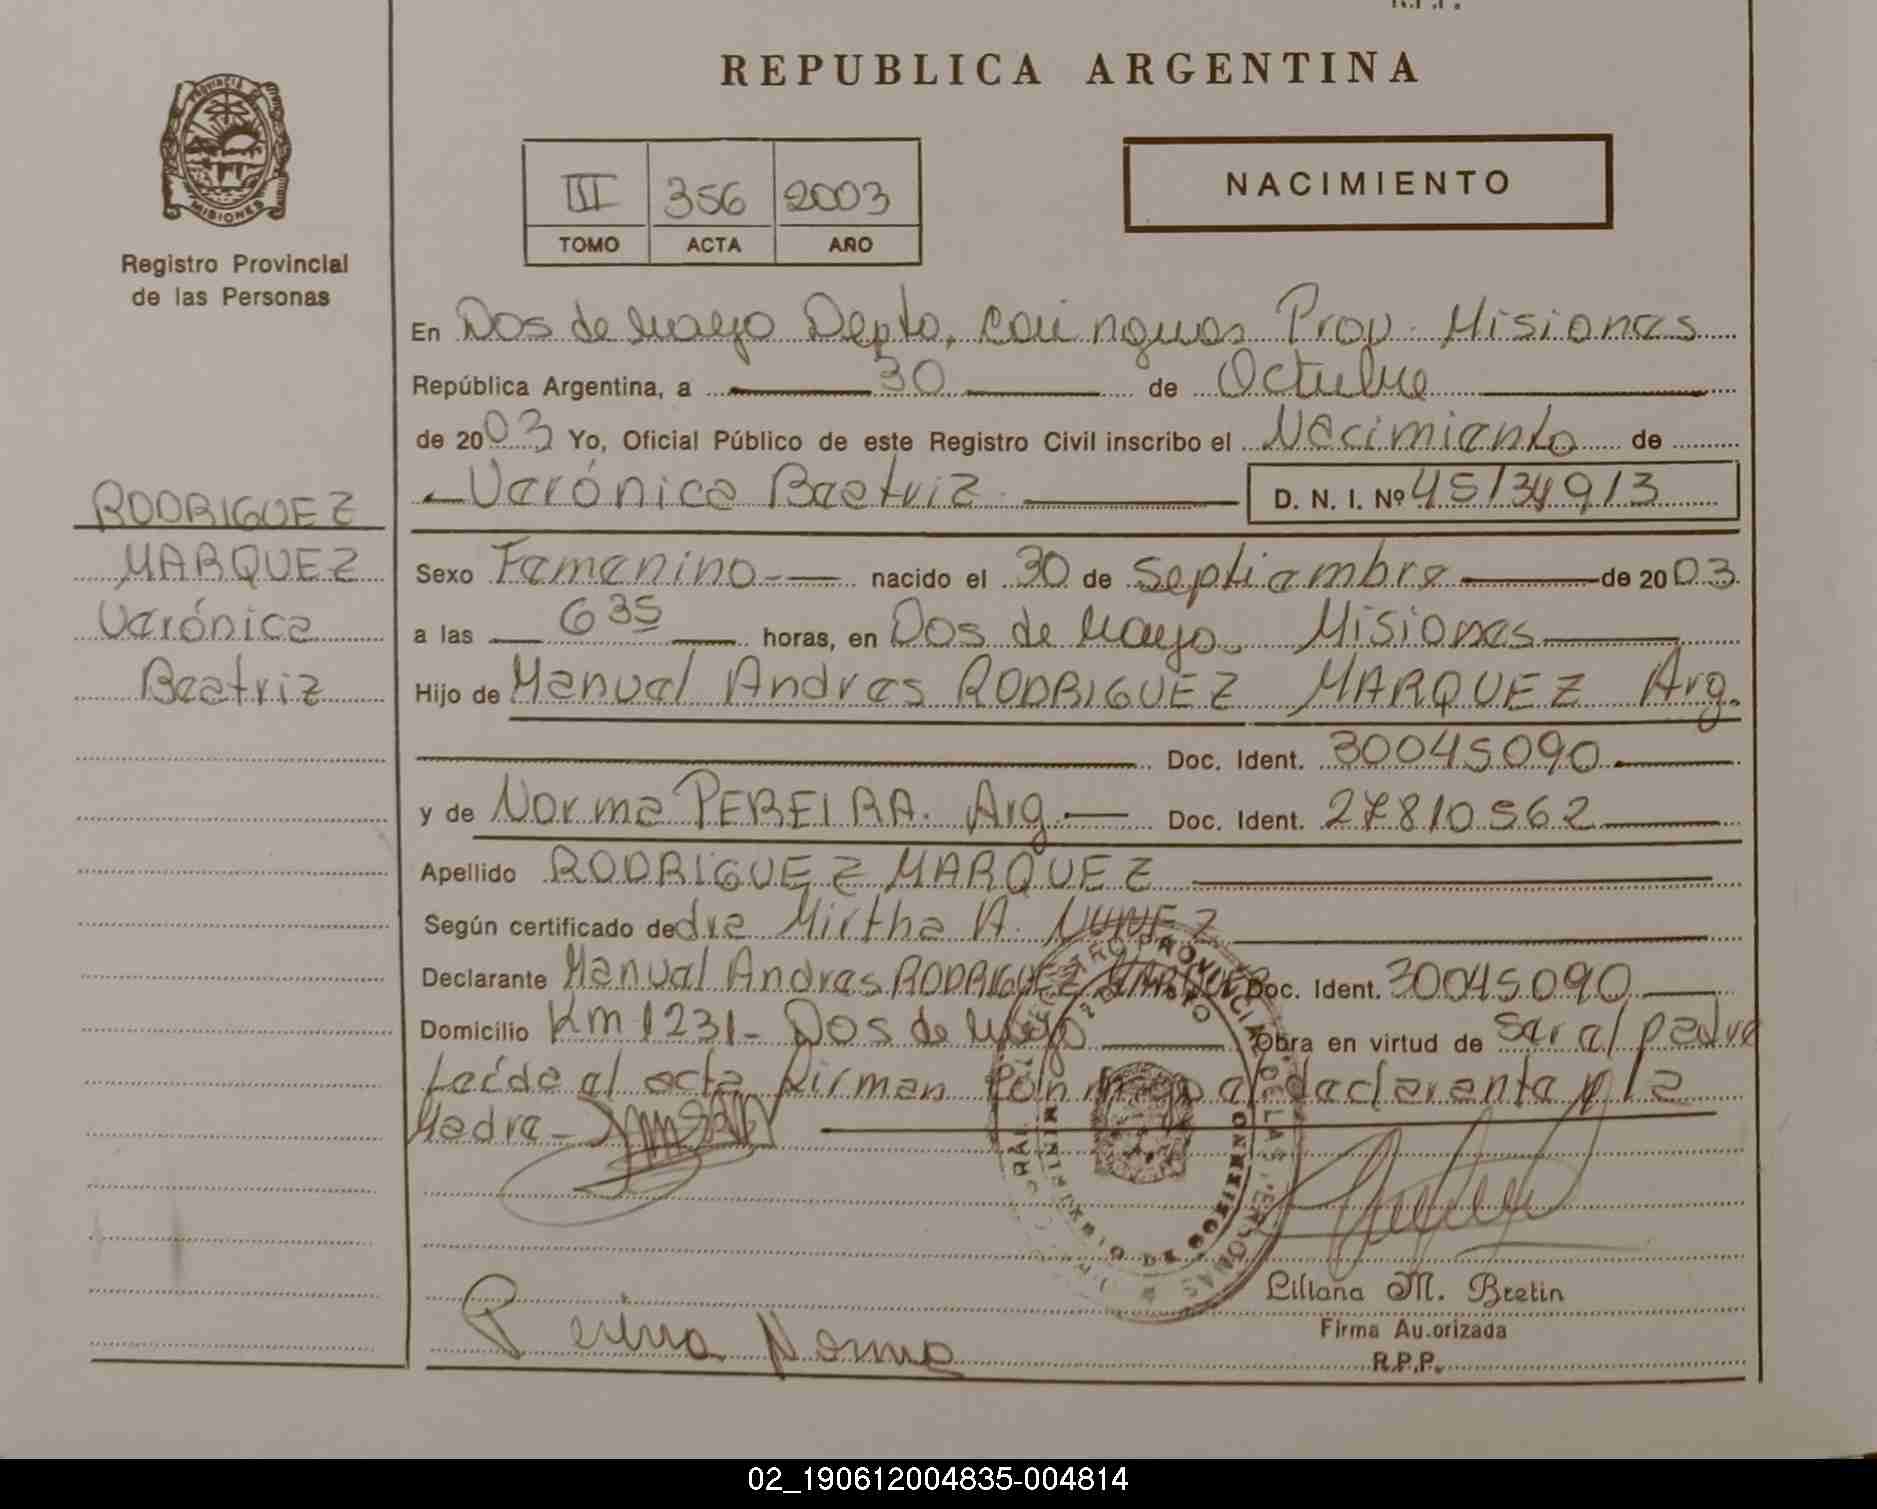 REPUBLICA ARGENTINA
NACIMIENTO
III 356 2003
TOMO ACTA AÑO
PROVINCIA DE
MISIONES
Registro Provincial
de las Personas
RODRIGUEZ
MARQUEZ
Verónica
Beatriz
En Dos de Mayo Depto, Cainguas Prov. Misiones
República Argentina, a 30 de Octubre
de 2003 Yo, Oficial Público de este Registro Civil inscribo el Nacimiento de
Verónica Beatriz D. N. I. Nº 45134913
Sexo Femenino nacido el 30 de Septiembre de 2003
a las 6 35 horas, en Dos de Mayo. Misiones
Hijo de Manuel Andres RODRIGUEZ MARQUEZ Arg.
Doc. Ident. 30045090
y de Norma PEREIRA. Arg. Doc. Ident. 27810562
Apellido RODRIGUEZ MARQUEZ
Según certificado de dra Mirtha A. NUÑEZ
Declarante Manuel Andres RODRIGUEZ MARQUEZ Doc. Ident. 30045090
Domicilio Km 1231- Dos de Mayo Obra en virtud de ser el padre
Leída el acta firman conmigo el declarante y la
Madre-
Pereira Norma
Liliana M. Bretin
Firma Autorizada
R.P.P.
02_190612004835-004814